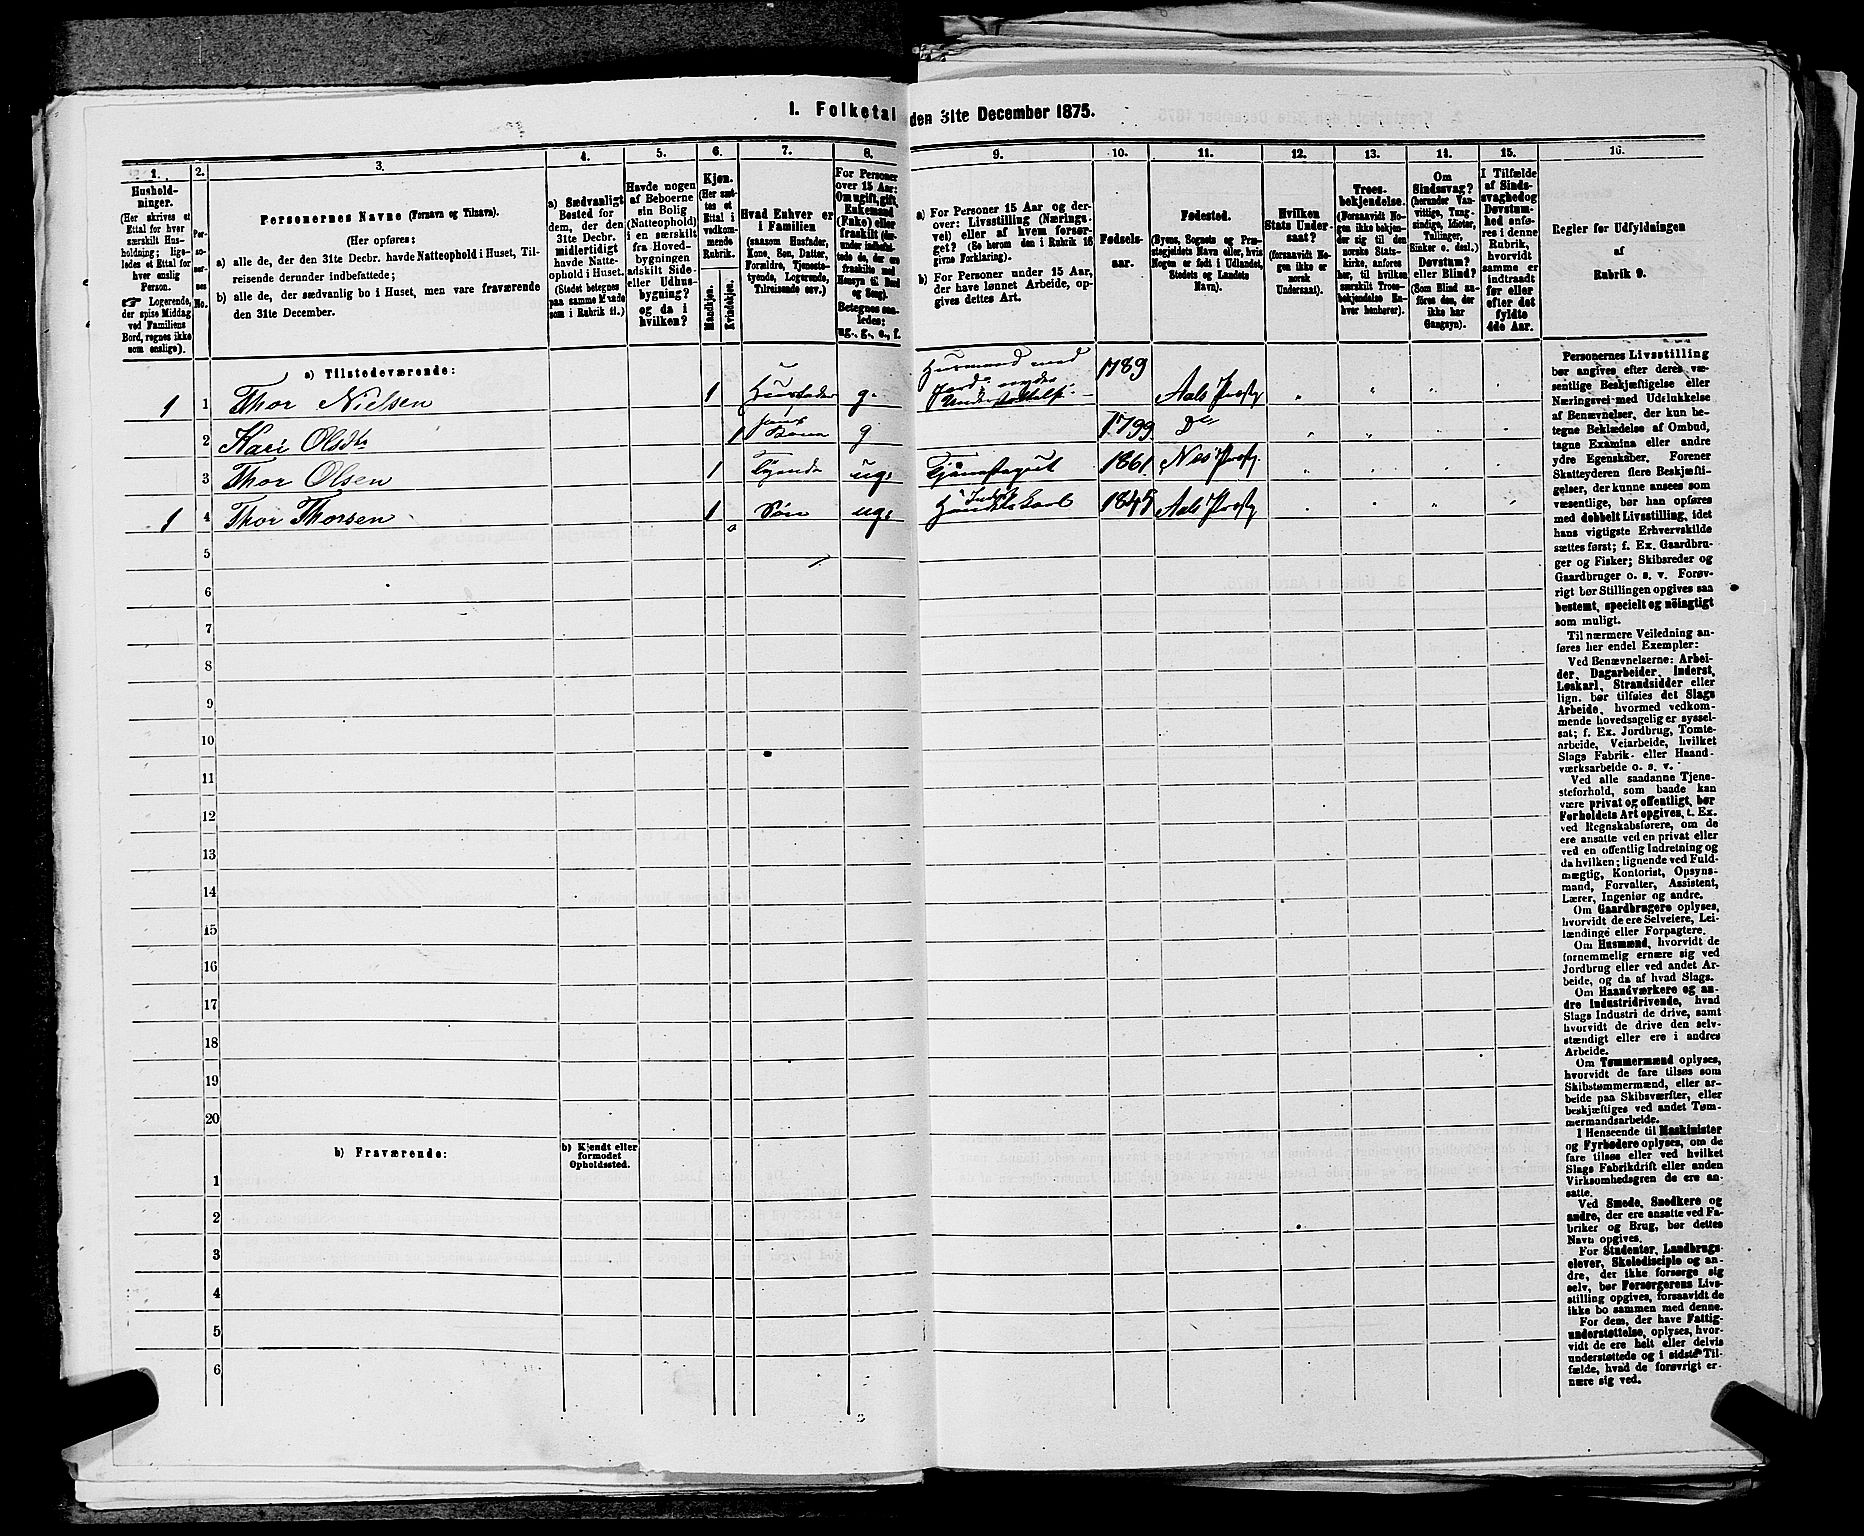 1. Folketal den 31te December 1875.
1. 2. 3. 4. 5. 6. 7. 8. 9. 10. 11. 12. 13. 14. 15. 16.
Hushold-
ninger.
(Her skrives et
Ettal for hver
særskilt Hus-
holdning; lige-
ledes et Ettal for
hver enslig
Person.
☞ Logerende,
der spise Middag
ved Familiens
Bord, regnes ikke
som enslige).
Per-
so-
ner-
nes
No.
Personernes Navne (Fornavn og Tilnavn).
(Her opføres:
a) alle de, der den 31te Decbr. havde Natteophold i Huset, Til-
reisende derunder indbefattede;
b) alle de, der sædvanlig bo i Huset, men vare fraværende
den 31te December.
a) Sædvanligt
Bosted for
dem, der den
31te Decbr.
midlertidigt
havde Natte-
ophold i Huset.
(Stedet betegnes
paa samme Maade
som i Rubrik 11.)
Havde nogen
af Beboerne
sin Bolig
(Natteophold)
i en særskilt
fra Hoved-
bygningen
adskilt Side-
eller Udhus-
bygning?
og da i
hvilken?
Kjøn.
(Her sæt-
tes et
Ettal i
vedkom-
mende
Rubrik.
Mandkjøn.
Kvindekjøn.
Hvad Enhver er
i Familien
(saasom Husfader,
Kone, Søn, Datter,
Forældre, Tjeneste-
tyende, Logerende,
Tilreisende osv.)
For Personer
over 15 Aar:
Om ugift, gift,
Enkemand
(Enke) eller
fraskilt (der-
under indbefat-
tede de, der ere
fraskilte med
Hensyn til Bord
og Seng).
Betegnes saa-
ledes:
ug., g., e., f.
a) For Personer 15 Aar og der-
over: Livsstilling (Nærings-
vei) eller af hvem forsør-
get? (Se herom den i Rubrik 16
givne Forklaring).
b) For Personer under 15 Aar,
der have lønnet Arbeide, op-
gives dettes Art.
Fødsels-
aar.
Fødested.
(Byens, Sognets og Præ-
stegjeldets Navn eller, hvis
Nogen er født i Udlandet,
Stedets og Landets
Navn).
Hvilken
Stats Under-
saat?
(forsaavidt No-
gen ikke er
norsk
Undersaat).
Troes-
bekjendelse.
(Forsaavidt No-
gen ikke bekjen-
der sig til den
norske Stats-
kirke, anføres
her, til hvilken
særskilt Troes-
bekjendelse En-
hver henhører).
Om
Sindssvag?
(herunder Van-
vittige, Tung-
sindige, Idioter,
Tullinger,
Sinker o. desl.)
Døvstum?
eller Blind?
(Som Blind an-
føres den, der
ikke har
Gangsyn).
I Tilfælde
af Sinds-
svaghed og
Døvstum-
hed anfø-
res i denne
Rubrik,
hvorvidt
samme er
indtraadt
før eller
efter det
fyldte
4de Aar.
Regler for Udfyldningen
af
Rubrik 9.
a) Tilstedeværende:
1 1 Thor Nielsen 1 Husfader g. Husmand med Jord 1789 Aals Prstg
2 Kari Olsdtr 1 g 1799 Do
3 Thor Olsen 1 Tyende ug. Tjänstegut 1861 Nes Prstg.
1 4 Thor Thorsen 1 Sön ug. Inderst 1845 Aals Prstg
5
6
7
8
9
10
11
12
13
14
15
16
17
18
19
20
b) Fraværende:
b) Kjendt eller
formodet
Opholdssted.
1
2
3
4
5
6
Personernes Livsstilling
bør angives efter deres væ-
sentlige Beskjæftigelse eller
Næringsvei med Udelukkelse
af Benævnelser, der kun be-
tegne Beklædelse af Ombud,
tagne Examina eller andre
ydre Egenskaber. Forener
Skatteyderen flere Beskjæfti-
gelser, der kunne ansees som
væsentlige, bør han opføres
med dobbelt Livsstilling, idet
hans vigtigste Erhvervskilde
sættes først; f. Ex. Gaardbru-
ger og Fisker; Skibsreder og
Gaardbruger o. s. v. Forøv-
rigt bør Stillingen opgives saa
bestemt, specielt og nöiagtigt
som muligt.
Til nærmere Veiledning an-
føres her endel Exempler:
Ved Benævnelserne: Arbei-
der, Dagarbeider, Inderst,
Løskarl, Strandsidder eller
lign. bør tilføies det Slags
Arbeide, hvormed vedkom-
mende hovedsagelig er syssel-
sat; f. Ex. Jordbrug, Tomte-
arbeide, Veiarbeide, hvilket
Slags Fabrik- eller Haand-
værksarbeide o. s. v.
Ved alle saadanne Tjene-
steforhold, som baade kan
være privat og offentligt, bør
Forholdets Art opgives, t. Ex.
ved Regnskabsførere, om de
ere ansatte ved en privat eller
ved en offentlig Indretning og
da hvilken; lignende ved Fuld-
mægtig, Kontorist, Opsyns-
mand, Forvalter, Assistent,
Lærer, Ingeniør og andre.
Om Gaardbrugere oplyses,
hvorvidt de ere Selveiere, Lei-
lændinge eller Forpagtere.
Om Husmænd, hvorvidt de
fornemmelig ernære sig ved
Jordbrug eller ved andet Ar-
beide, og da af hvad Slags.
Om Haandværkere og an-
dre Industridrivende, hvad
Slags Industri de drive, samt
hvorvidt de drive den selv-
stændigt eller ere i andres
Arbeide.
Om Tømmermænd oplyses,
hvorvidt de fare tilsøs som
Skibstømmermænd, eller ar-
beide paa Skibsværfter, eller
beskjæftiges ved andet Tøm-
mermandsarbeide.
I Henseende til Maskinister
og Fyrbødere oplyses, om de
fare tilsøs eller ved hvilket
Slags Fabrikdrift eller anden
Virksomhedsgren de ere an-
satte.
Ved Smede, Snedkere og
andre, der ere ansatte ved Fa-
briker og Brug, bør dettes
Navn opgives.
For Studenter, Landbrugs-
elever, Skoledisciple og an-
dre, der ikke forsørge sig
selv, bør Forsørgerens Livs-
stilling opgives, forsaavidt de
ikke bo sammen med denne.
For dem, der have Fattig-
understøttelse, oplyses, hvor-
vidt de ere helt eller delvis
understøttede og i sidste Til-
fælde, hvad de forøvrigt er-
nære sig ved.